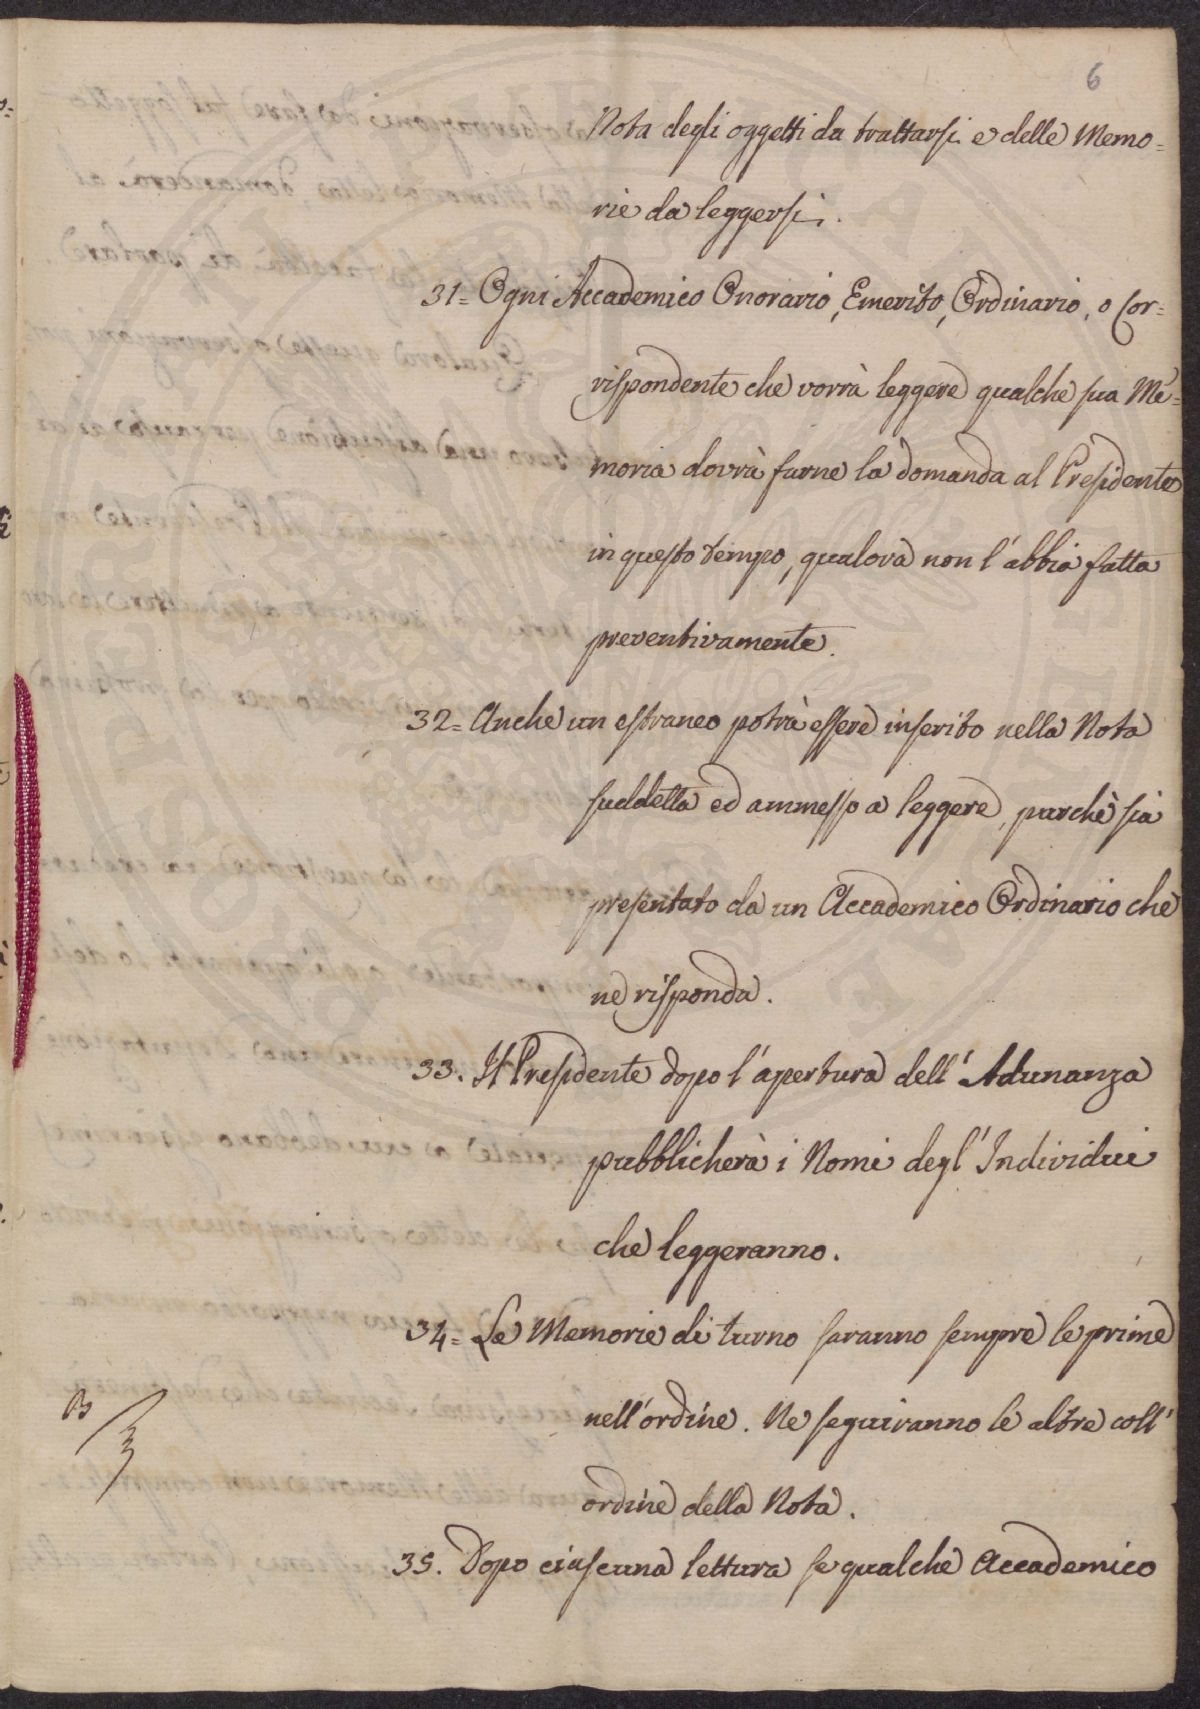 6
Nota degli oggetti da trattarsi e delle Memo=
rie da leggersi.
31= Ogni Accademico Onorario, Emerito, Ordinario, o Cor=
rispondente che vorrà leggere qualche sua Me=
moria dovrà farne la domanda al Presidente
in questo tempo, qualora non l'abbia fatta
preventivamente.
32= Anche un estraneo potrà essere inserito nella Nota
suddetta ed ammesso a leggere, purchè sia
presentato da un Accademico Ordinario che
ne risponda.
33. Il Presidente dopo l'apertura dell'Adunanza
pubblicherà i Nomi degl'Individui
che leggeranno.
34= Le Memorie di turno saranno sempre le prime
nell'ordine. Ne seguiranno le altre coll'
ordine della Nota.
35. Dopo ciascuna lettura se qualche Accademico